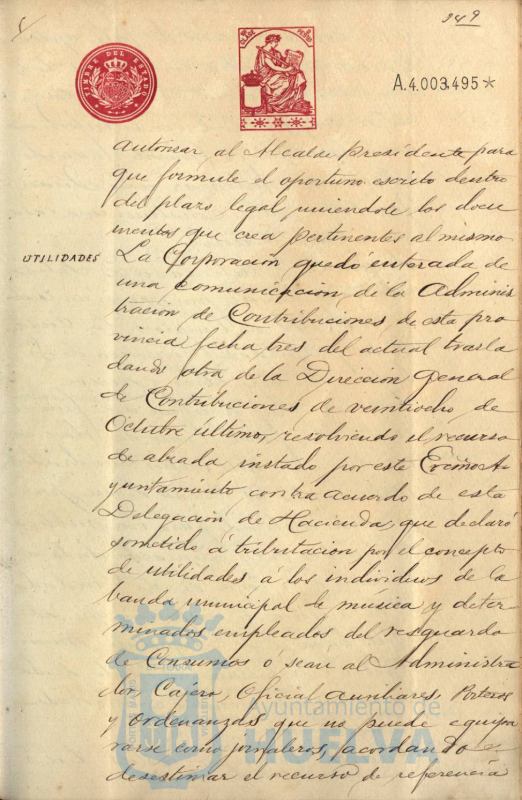 349
TIMBRE DEL ESTADO
A.4.003.495*
autorizar al Alcalde Presidente para
que formule el oportuno escrito dentro
del plazo legal uniendole los docu
mentos que crea pertinentes al mismo
UTILIDADES
La Corporación quedó enterada de
una comunicación de la Adminis
tración de Contribuciones de esta pro
vincia fecha tres del actual trasla
dando otra de la Dirección general
de Contribuciones de veintiocho de
Octubre último, resolviendo el recurso
de alzada instado por este Excmo A-
yuntamiento contra acuerdo de esta
Delegación de Hacienda que declaró
sometido á tributacion por el concepto
de utilidades á los individuos de la
banda municipal de música y deter
minados empleados del resguardo
de Consumos ó sean al Administra
dor, Cajero, Oficial auxiliares, Porteros
y ordenanzas que no puede equipa
rarse como jornaleros, acordando
desestimar el recurso de referencia
Ayuntamiento de
HUELVA